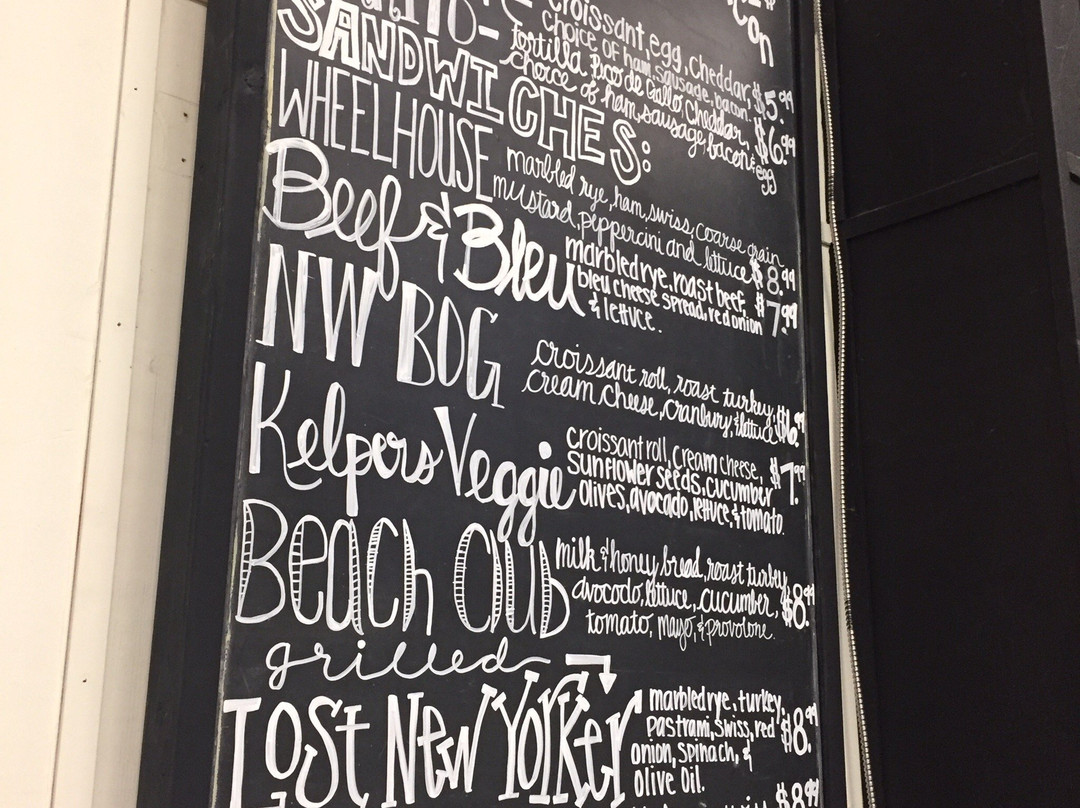 croissant, egg, cheddar,
choice of ham, sausage, bacon. $5.99
tortilla, Pico de Gallo, Cheddar, $6.99
choice of ham, sausage, bacon & egg
SANDWICHES:
WHEELHOUSE marbled rye, ham, swiss, coarse grain
mustard, peppercini and lettuce $8.99
Beef & Bleu marbled rye, roast beef,
bleu cheese spread, red onion $7.99
& lettuce.
NW BOG croissant roll, roast turkey,
cream cheese, cranbury, & lettuce $6.99
Kelpers Veggie croissant roll, cream cheese, $7.99
sunflower seeds, cucumber
olives, avocado, lettuce, & tomato.
Beach Club milk & honey bread, roast turkey,
avocodo, lettuce, cucumber, $8.99
tomato, mayo, & provolone.
grilled
Lost New Yorker marbled rye, turkey,
pastrami, swiss, red $8.99
onion, spinach, &
olive oil.
$8.99